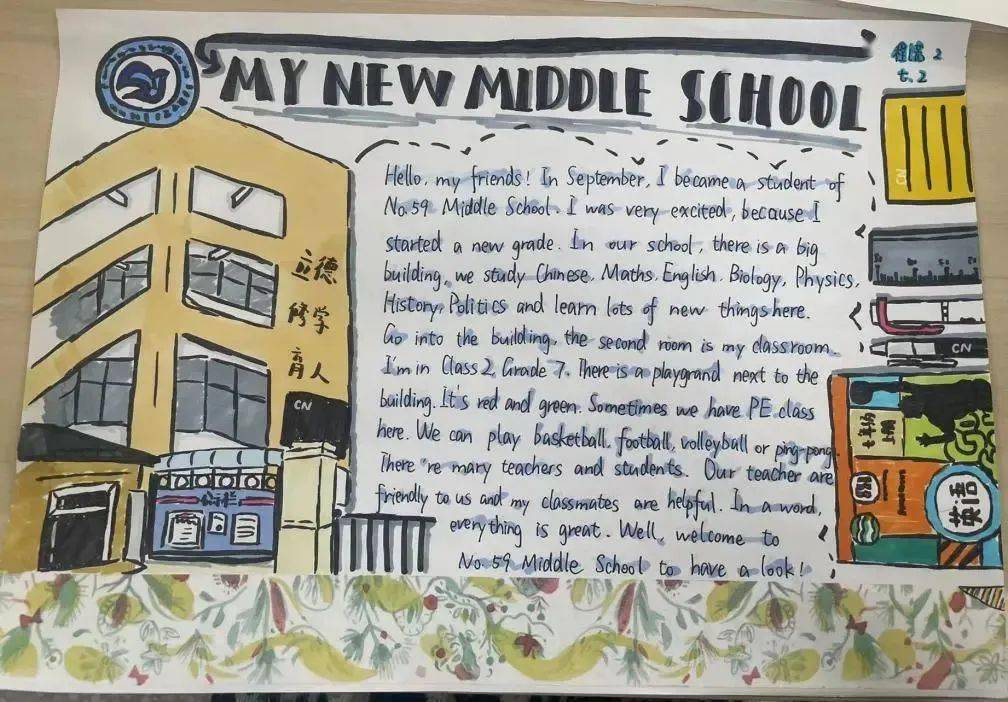 MY NEW MIDDLE SCHOOL
2
7.2
Hello, my friends! In September, I became a student of
No.59 Middle School. I was very excited, because I
started a new grade. In our school, there is a big
building, we study Chinese, Maths, English, Biology, Physics,
History, Politics and learn lots of new things here.
Go into the building, the second room is my classroom.
I'm in Class 2, Grade 7. There is a playgrand next to the
building. It's red and green. Sometimes we have PE class
here. We can play basketball, football, volleyball or ping-pong.
There 're many teachers and students. Our teacher are
friendly to us and my classmates are helpful. In a word,
everything is great. Well, welcome to
No.59 Middle School to have a look!
立德
修学
育人
CN
CN
七年级
上册
英语